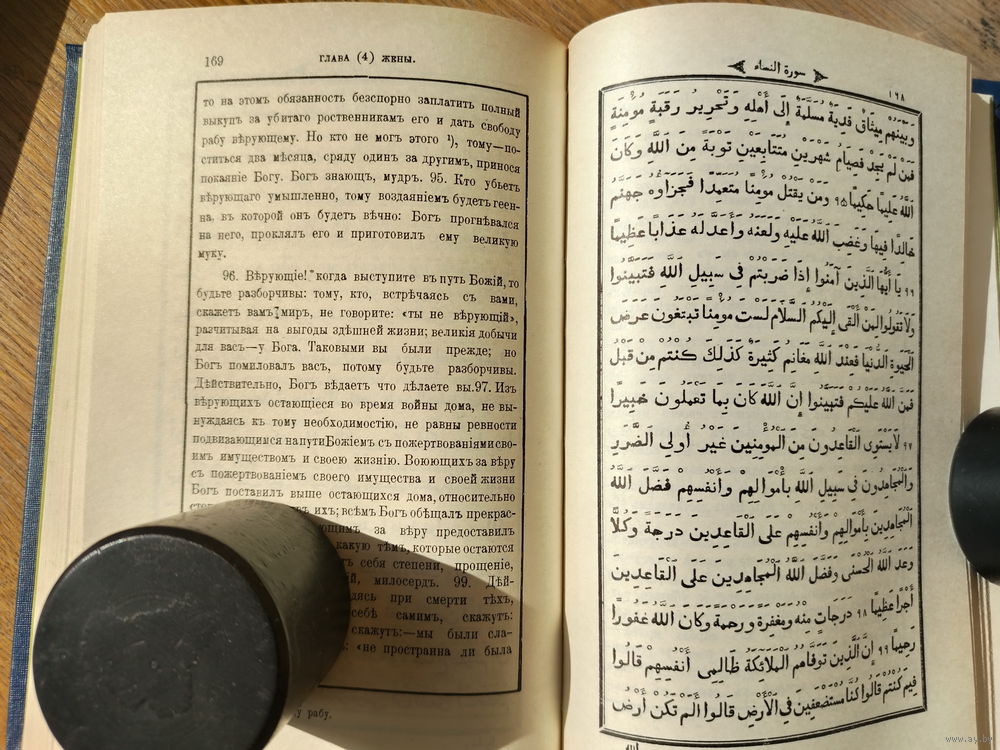 169
ГЛАВА (4) ЖЕНЫ.
то на этомъ обязанность безспорно заплатить полный
выкупъ за убитаго роственникамъ его и дать свободу
рабу вѣрующему. Но кто не могъ этого ¹), тому—по-
ститься два мѣсяца, сряду одинъ за другимъ, принося
покаяніе Богу. Богъ знающъ, мудръ. 95. Кто убьетъ
вѣрующаго умышленно, тому воздаяніемъ будетъ геен-
на, въ которой онъ будетъ вѣчно: Богъ прогнѣвался
на него, проклялъ его и приготовилъ ему великую
муку.
96. Вѣрующіе! когда выступите въ путь Божій, то
будьте разборчивы: тому, кто, встрѣчаясь съ вами,
скажетъ вамъ: миръ, не говорите: «ты не вѣрующій»,
разчитывая на выгоды здѣшней жизни; великія добычи
для васъ—у Бога. Таковыми вы были прежде; но
Богъ помиловалъ васъ, потому будьте разборчивы.
Дѣйствительно, Богъ вѣдаетъ что дѣлаете вы. 97. Изъ
вѣрующихъ остающіеся во время войны дома, не вы-
нуждаясь къ тому необходимостію, не равны ревности
подвизающимся на пути Божіемъ съ пожертвованіями сво-
имъ имуществомъ и своею жизнію. Воюющихъ за вѣру
съ пожертвованіемъ своего имущества и своей жизни
Богъ поставилъ выше остающихся дома, относительно
ихъ; всѣмъ Богъ обѣщалъ прекрас-
за вѣру предоставилъ
какую тѣмъ, которые остаются
себя степени, прощеніе,
милосердъ. 99. Дѣй-
при смерти тѣхъ,
себѣ самимъ, скажутъ:
скажутъ:—мы были сла-
«не пространна ли была
у рабу.
سورة النساء
١٦٨
وَبَيْنَهُم مِيثَاقٌ فَدِيَةٌ مُسَلَّمَةٌ إِلَى أَهْلِهِ وَتَحْرِيرُ رَقَبَةٍ مُؤْمِنَةٍ
فَمَنْ لَمْ يَجِدْ فَصِيَامُ شَهْرَيْنِ مُتَتَابِعَيْنِ تَوْبَةً مِنَ اللَّهِ وَكَانَ
اللَّهُ عَلِيمًا حَكِيمًا ٩٥ وَمَنْ يَقْتُلْ مُؤْمِنًا مُتَعَمِّدًا فَجَزَاؤُهُ جَهَنَّمُ
خَالِدًا فِيهَا وَغَضِبَ اللَّهُ عَلَيْهِ وَلَعَنَهُ وَأَعَدَّ لَهُ عَذَابًا عَظِيمًا
٩٦ يَا أَيُّهَا الَّذِينَ آمَنُوا إِذَا ضَرَبْتُمْ فِي سَبِيلِ اللَّهِ فَتَبَيَّنُوا
وَلَا تَقُولُوا لِمَنْ أَلْقَى إِلَيْكُمُ السَّلَامَ لَسْتَ مُؤْمِنًا تَبْتَغُونَ عَرَضَ
الْحَيَوةِ الدُّنْيَا فَعِنْدَ اللَّهِ مَغَانِمُ كَثِيرَةٌ كَذَلِكَ كُنْتُمْ مِنْ قَبْلُ
فَمَنَّ اللَّهُ عَلَيْكُمْ فَتَبَيَّنُوا إِنَّ اللَّهَ كَانَ بِمَا تَعْمَلُونَ خَبِيرًا
٩٧ لَا يَسْتَوِي الْقَاعِدُونَ مِنَ الْمُؤْمِنِينَ غَيْرُ أُولِي الضَّرَرِ
وَالْمُجَاهِدُونَ فِي سَبِيلِ اللَّهِ بِأَمْوَالِهِمْ وَأَنْفُسِهِمْ فَضَّلَ اللَّهُ
الْمُجَاهِدِينَ بِأَمْوَالِهِمْ وَأَنْفُسِهِمْ عَلَى الْقَاعِدِينَ دَرَجَةً وَكُلًّا
وَعَدَ اللَّهُ الْحُسْنَى وَفَضَّلَ اللَّهُ الْمُجَاهِدِينَ عَلَى الْقَاعِدِينَ
أَجْرًا عَظِيمًا ٩٨ دَرَجَاتٍ مِنْهُ وَمَغْفِرَةً وَرَحْمَةً وَكَانَ اللَّهُ غَفُورًا
رَحِيمًا ٩٩ إِنَّ الَّذِينَ تَوَفَّاهُمُ الْمَلَائِكَةُ ظَالِمِي أَنْفُسِهِمْ قَالُوا
فِيمَ كُنْتُمْ قَالُوا كُنَّا مُسْتَضْعَفِينَ فِي الْأَرْضِ قَالُوا أَلَمْ تَكُنْ أَرْضُ
الله
www.ay.by